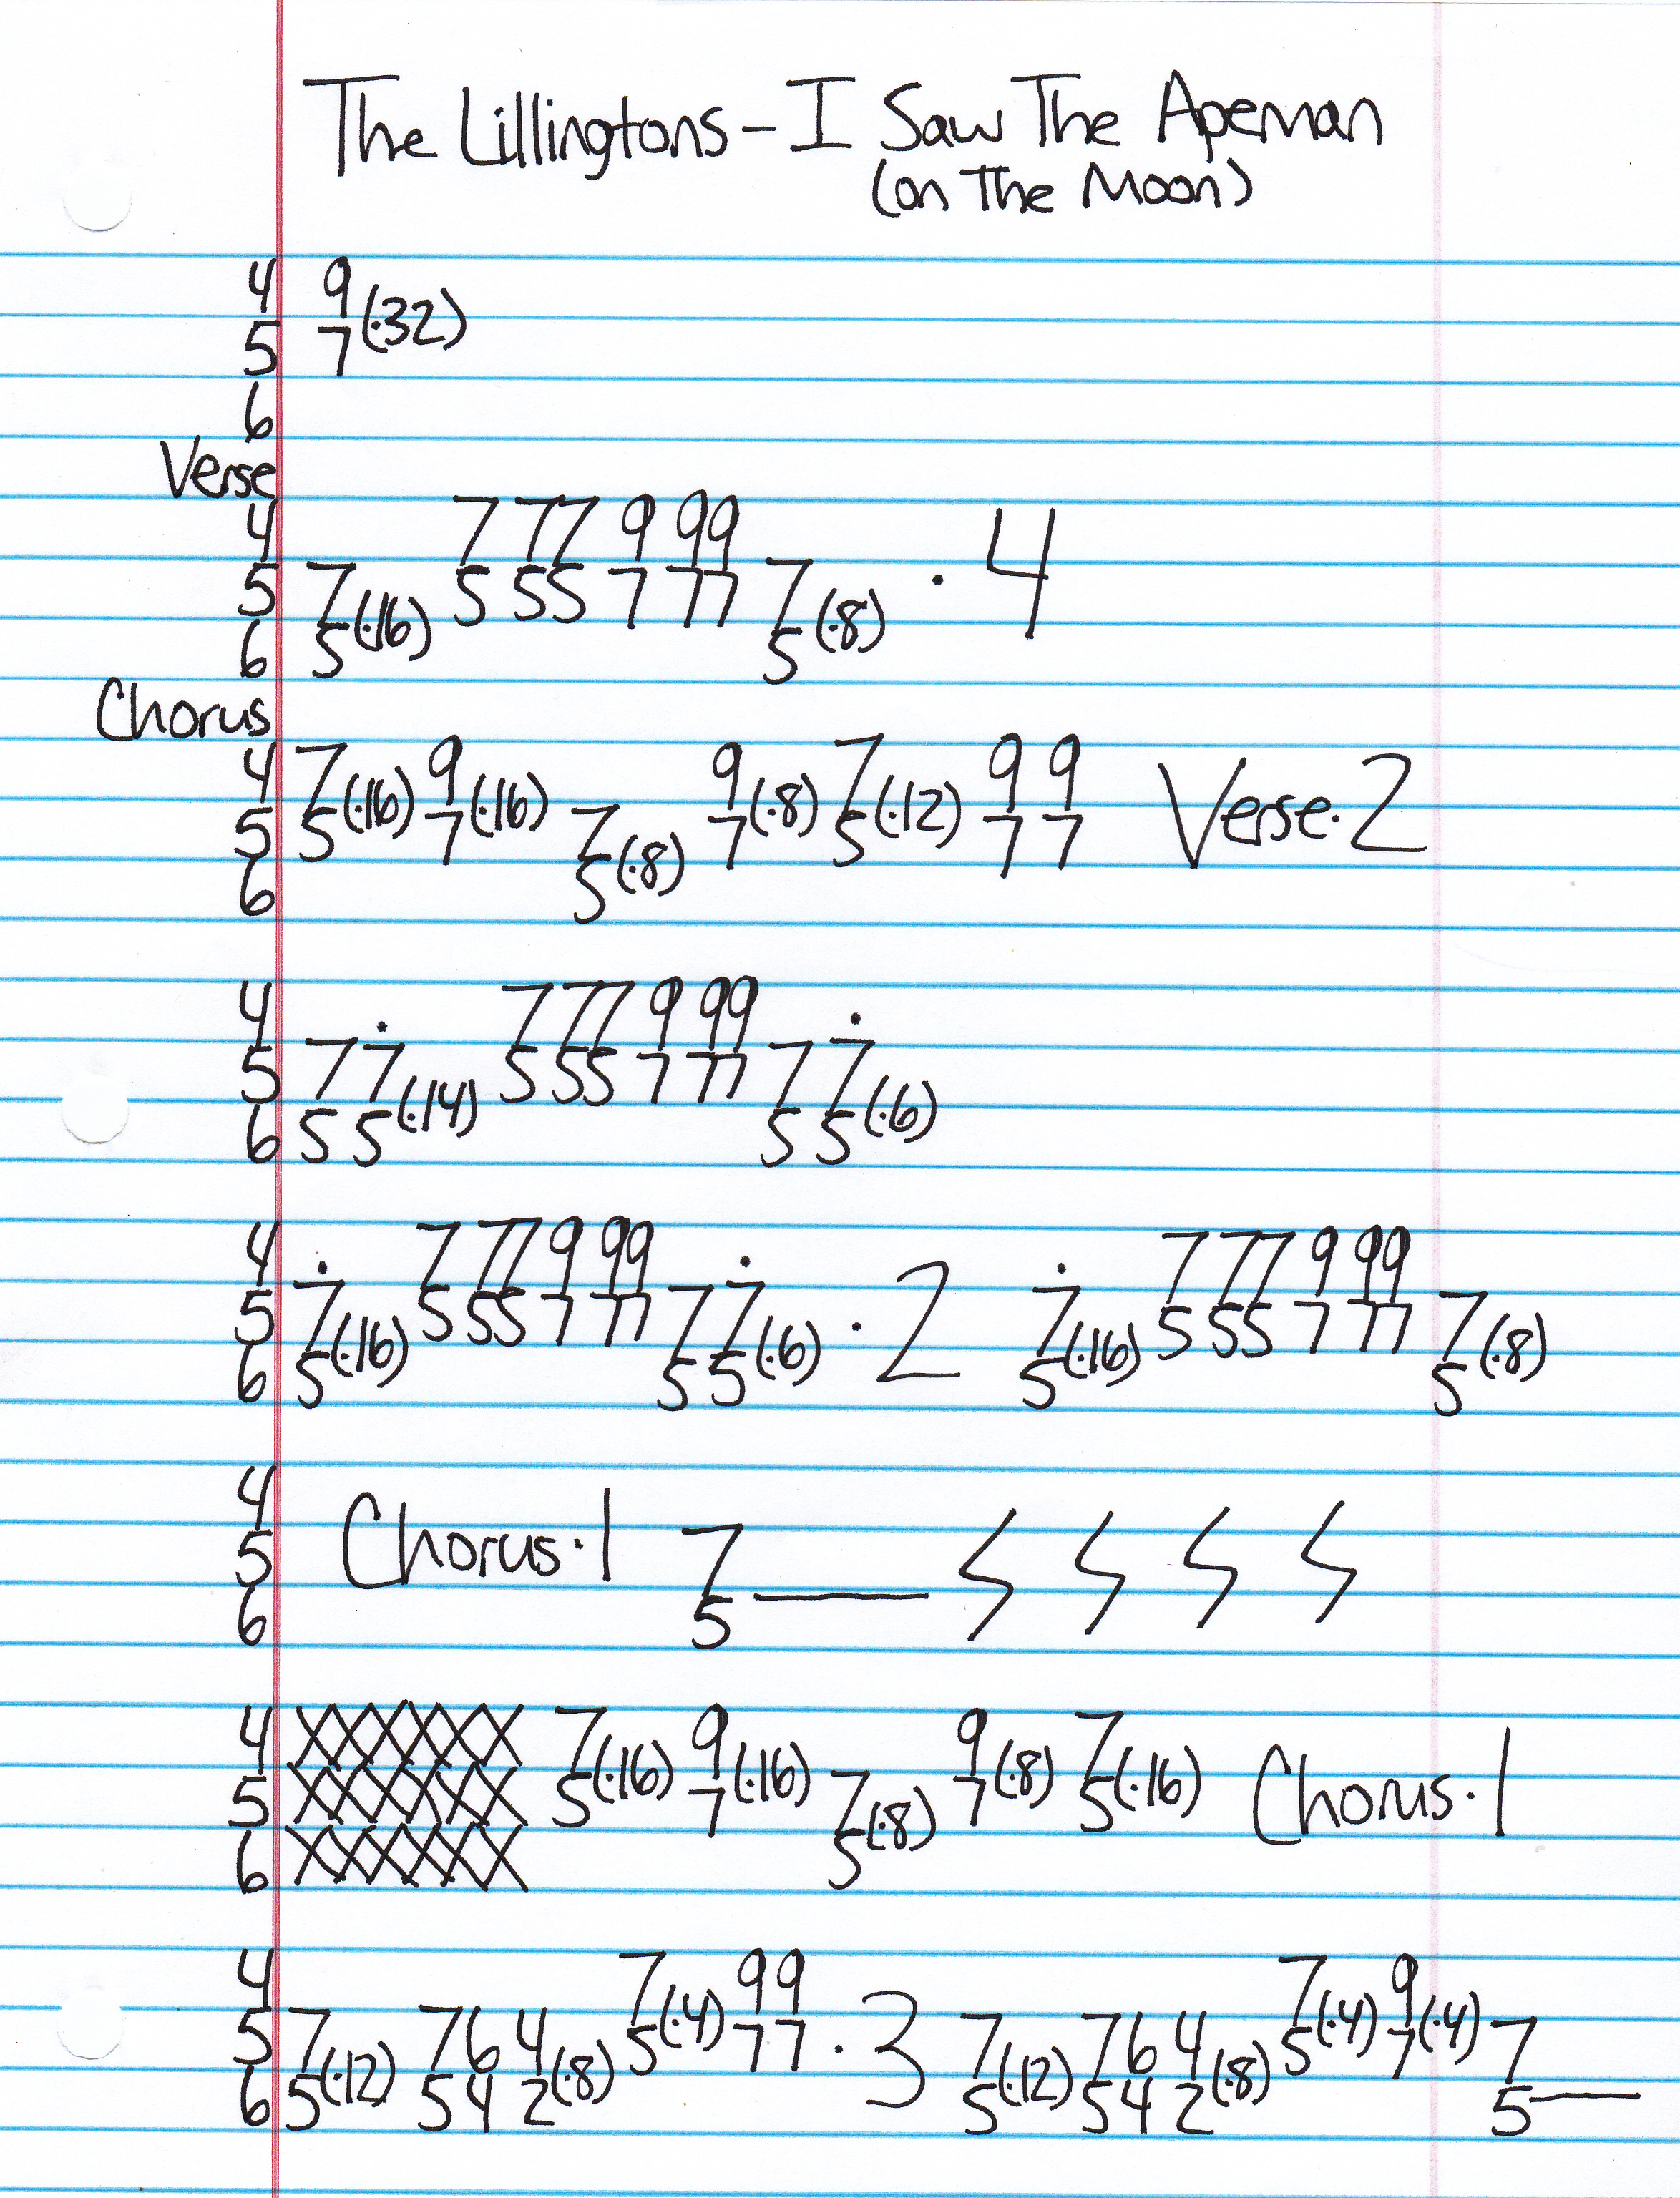 The Lillingtons - I Saw The Apeman
(on The Moon)
4 9
5 7 (·32)
6
Verse
4 7 77 9 99
5 7 (·16) 5 55 7 77 7 (·8) · 4
6 5 5
Chorus
4 7 (·16) 9 (·16) 9 (·8) 7 (·12) 9 9 Verse·2
5 5 7 7 7 5 7 7
6 5 (·8)
4 7 77 9 99
5 7 7̇ (·14) 5 55 7 77 7 7̇ (·6)
6 5 5 5 5
4 7 77 9 99 7 77 9 99
5 7̇ (·16) 5 55 7 77 7 7̇ (·6) · 2 7̇ (·16) 5 55 7 77 7 (·8)
6 5 5 5 5 5
4
5 Chorus·1 7
6 5
4 XXXXX 7 (·16) 9 (·16) 9 (·8) 7 (·16) Chorus·1
5 XXXXX 5 7 7 (·8) 7 5
6 XXXXX 5
4 7 (·4) 99 7 (·4) 9 (·4)
5 7 (·12) 7 6 4 (·8) 5 7 7 · 3 7 (·12) 7 6 4 (·8) 5 7 7
6 5 5 4 2 5 5 4 2 5